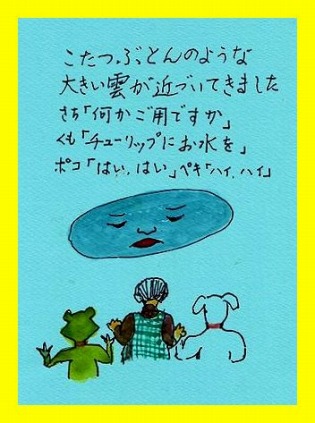 こたつぶとんのような
大きい雲が近づいてきました
さち「何かご用ですか」
くも「チューリップにお水を」
ポコ「はい、はい」ペキ「ハイ、ハイ」